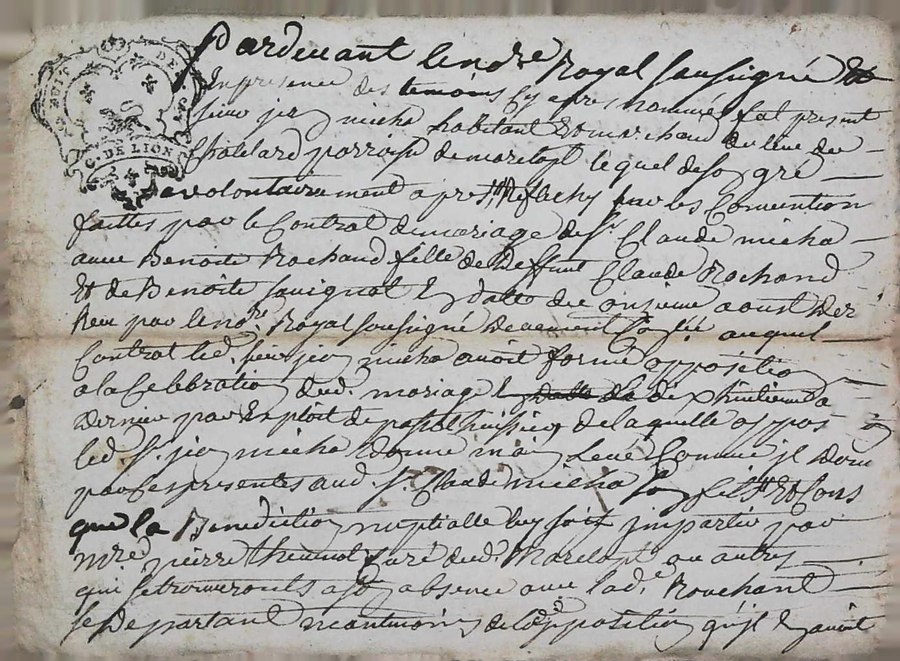 G. DE LION
Pardevant le nore Royal soussigné Et
En presence des temoins cy apres nommés fut present
sieur jean micha habitant Et marchand du lieu de
Chatelard parroisse demarclopt lequel deson gré
volontairement apres
faittes par le Contrat demariage de sr. Claude micha
avec Benoite Rochand fille de Deffunt Claude Rochand
Et de Benoite sauignat En datte du onzieme aoust Der
Receu par le nore. Royal soussigné auquel
Contrat led. sieur jean micha avoit formé opposition
a la Celebration dud. mariage le dixhuitieme
Dernier par Exploit de huissier de laquelle oppo
led. sr. jean micha Donne main Levée Comme jl Donne
par Ces presentes aud. sr. Claude micha son fils Et Cons
que la Benediction nuptialle luy soit jmpartie par
mre pierre Curé dud. Marclopt ou autres
qui setrouueronts a son absence avec lad.e Rouchand
se Departant neantmoins de lad. opposition qu'jl En auoit